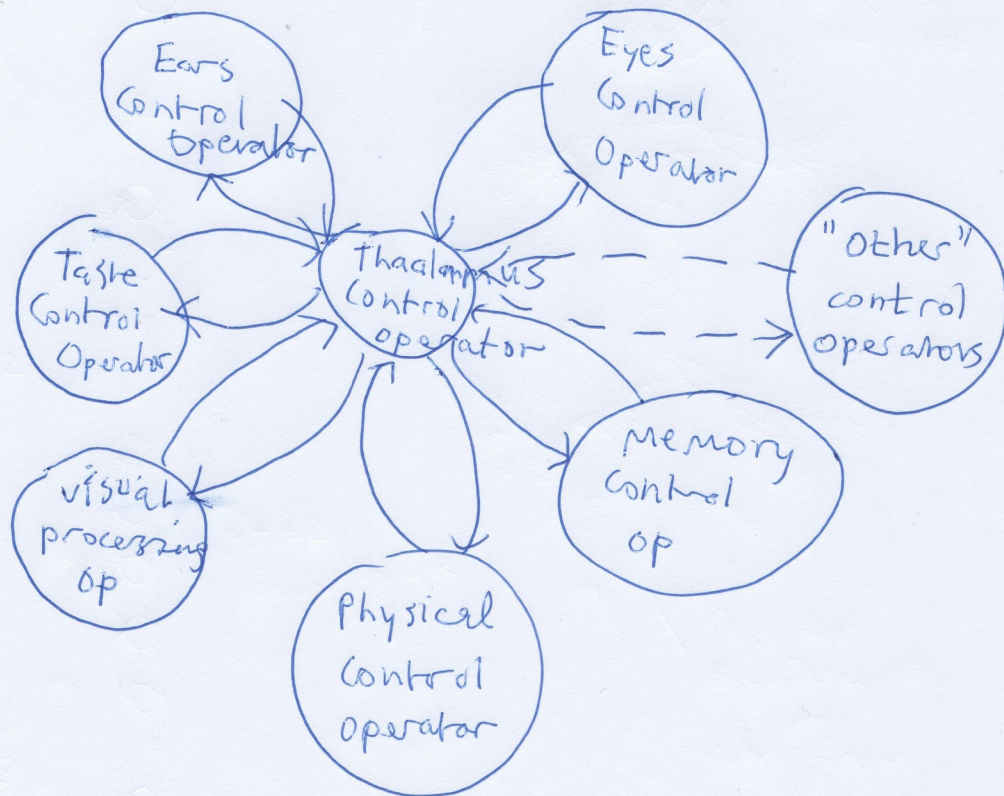 Ears
Control
Operator
Eyes
Control
Operator
Taste
Control
Operator
Thaalammus
Control
operator
"Other"
control
operators
visual
processing
op
Memory
control
op
Physical
Control
operator